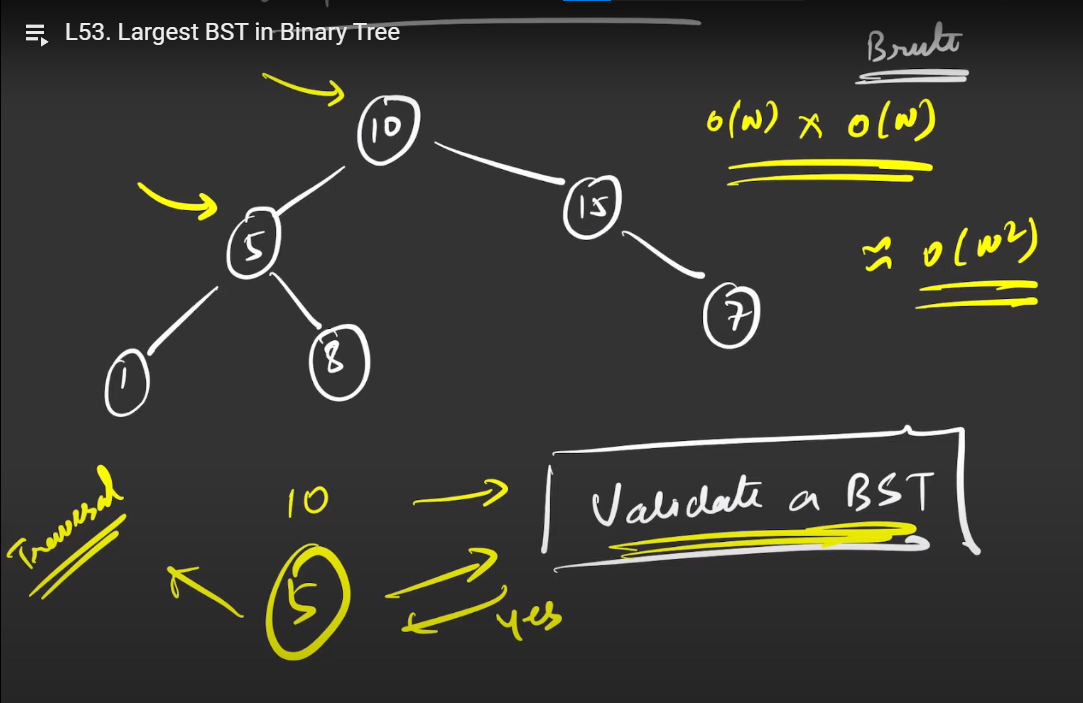 L53. Largest BST in Binary Tree
Brute
O(N) x O(N)
≈ O(N²)
10
5
15
1
8
7
Traversal
10
Validate a BST
5
yes